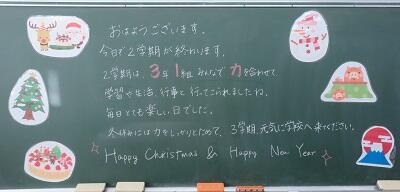 おはようございます。
今日で2学期が終わります。
2学期は、3年1組みんなで力を合わせて、
学習や生活、行事と行ってこられましたね。
毎日とても楽しい日でした。
冬休みには力をしっかりためて、3学期、元気に学校へ来てください。
Happy Christmas & Happy New Year